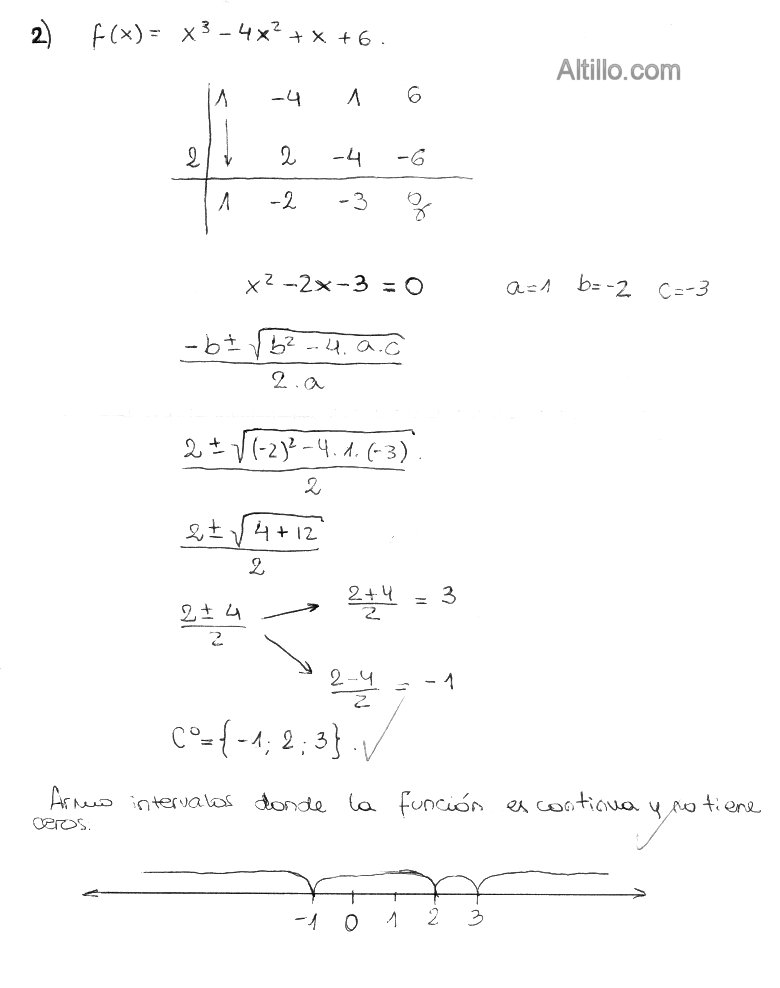 2) f(x) = x³ - 4x² + x + 6.
Altillo.com
1 -4 1 6
2 2 -4 -6
1 -2 -3 0
x² - 2x - 3 = 0 a=1 b=-2 c=-3
-b ± √(b² - 4.a.c)
2.a
2 ± √((-2)² - 4.1.(-3)).
2
2 ± √(4+12)
2
2 ± 4
2
2+4
2
= 3
2-4
2
= -1
C⁰ = {-1; 2; 3}. ✓
Armo intervalos donde la función es continua y no tiene
ceros.
-1 0 1 2 3